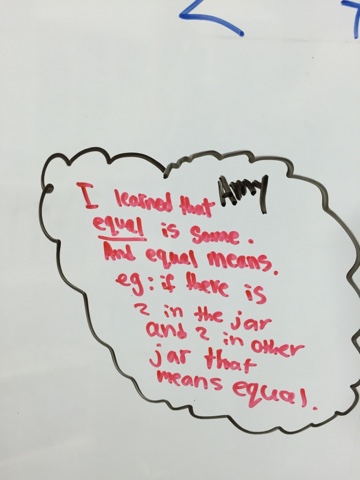 Amy
I learned that
equal is same.
And equal means.
eg: if there is
2 in the jar
and 2 in other
jar that
means equal.